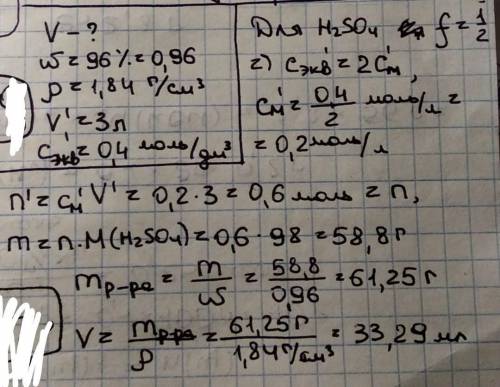 V - ?
ω = 96% = 0,96
ρ = 1,84 г/см³
V' = 3л
Cэкв' = 0,4 моль/дм³
Для H₂SO₄ f = 1/2
=) Cэкв' = 2Cм',
Cм' = 0,4/2 моль/л =
= 0,2 моль/л
n' = Cм' V' = 0,2 · 3 = 0,6 моль = n,
m = n · M(H₂SO₄) = 0,6 · 98 = 58,8 г
mр-ра = m/ω = 58,8/0,96 = 61,25 г
V = mр-ра/ρ = 61,25 г/1,84 г/см³ = 33,29 мл